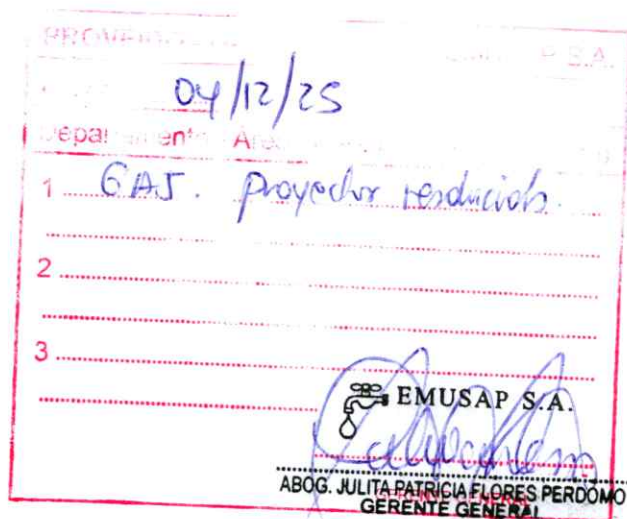 PROVEIDO P S.A.
04/12/25
Departamento Area
1 GAJ. proyectar resolución.
2
3
EMUSAP S.A.
ABOG. JULITA PATRICIA FLORES PERDOMO
GERENTE GENERAL